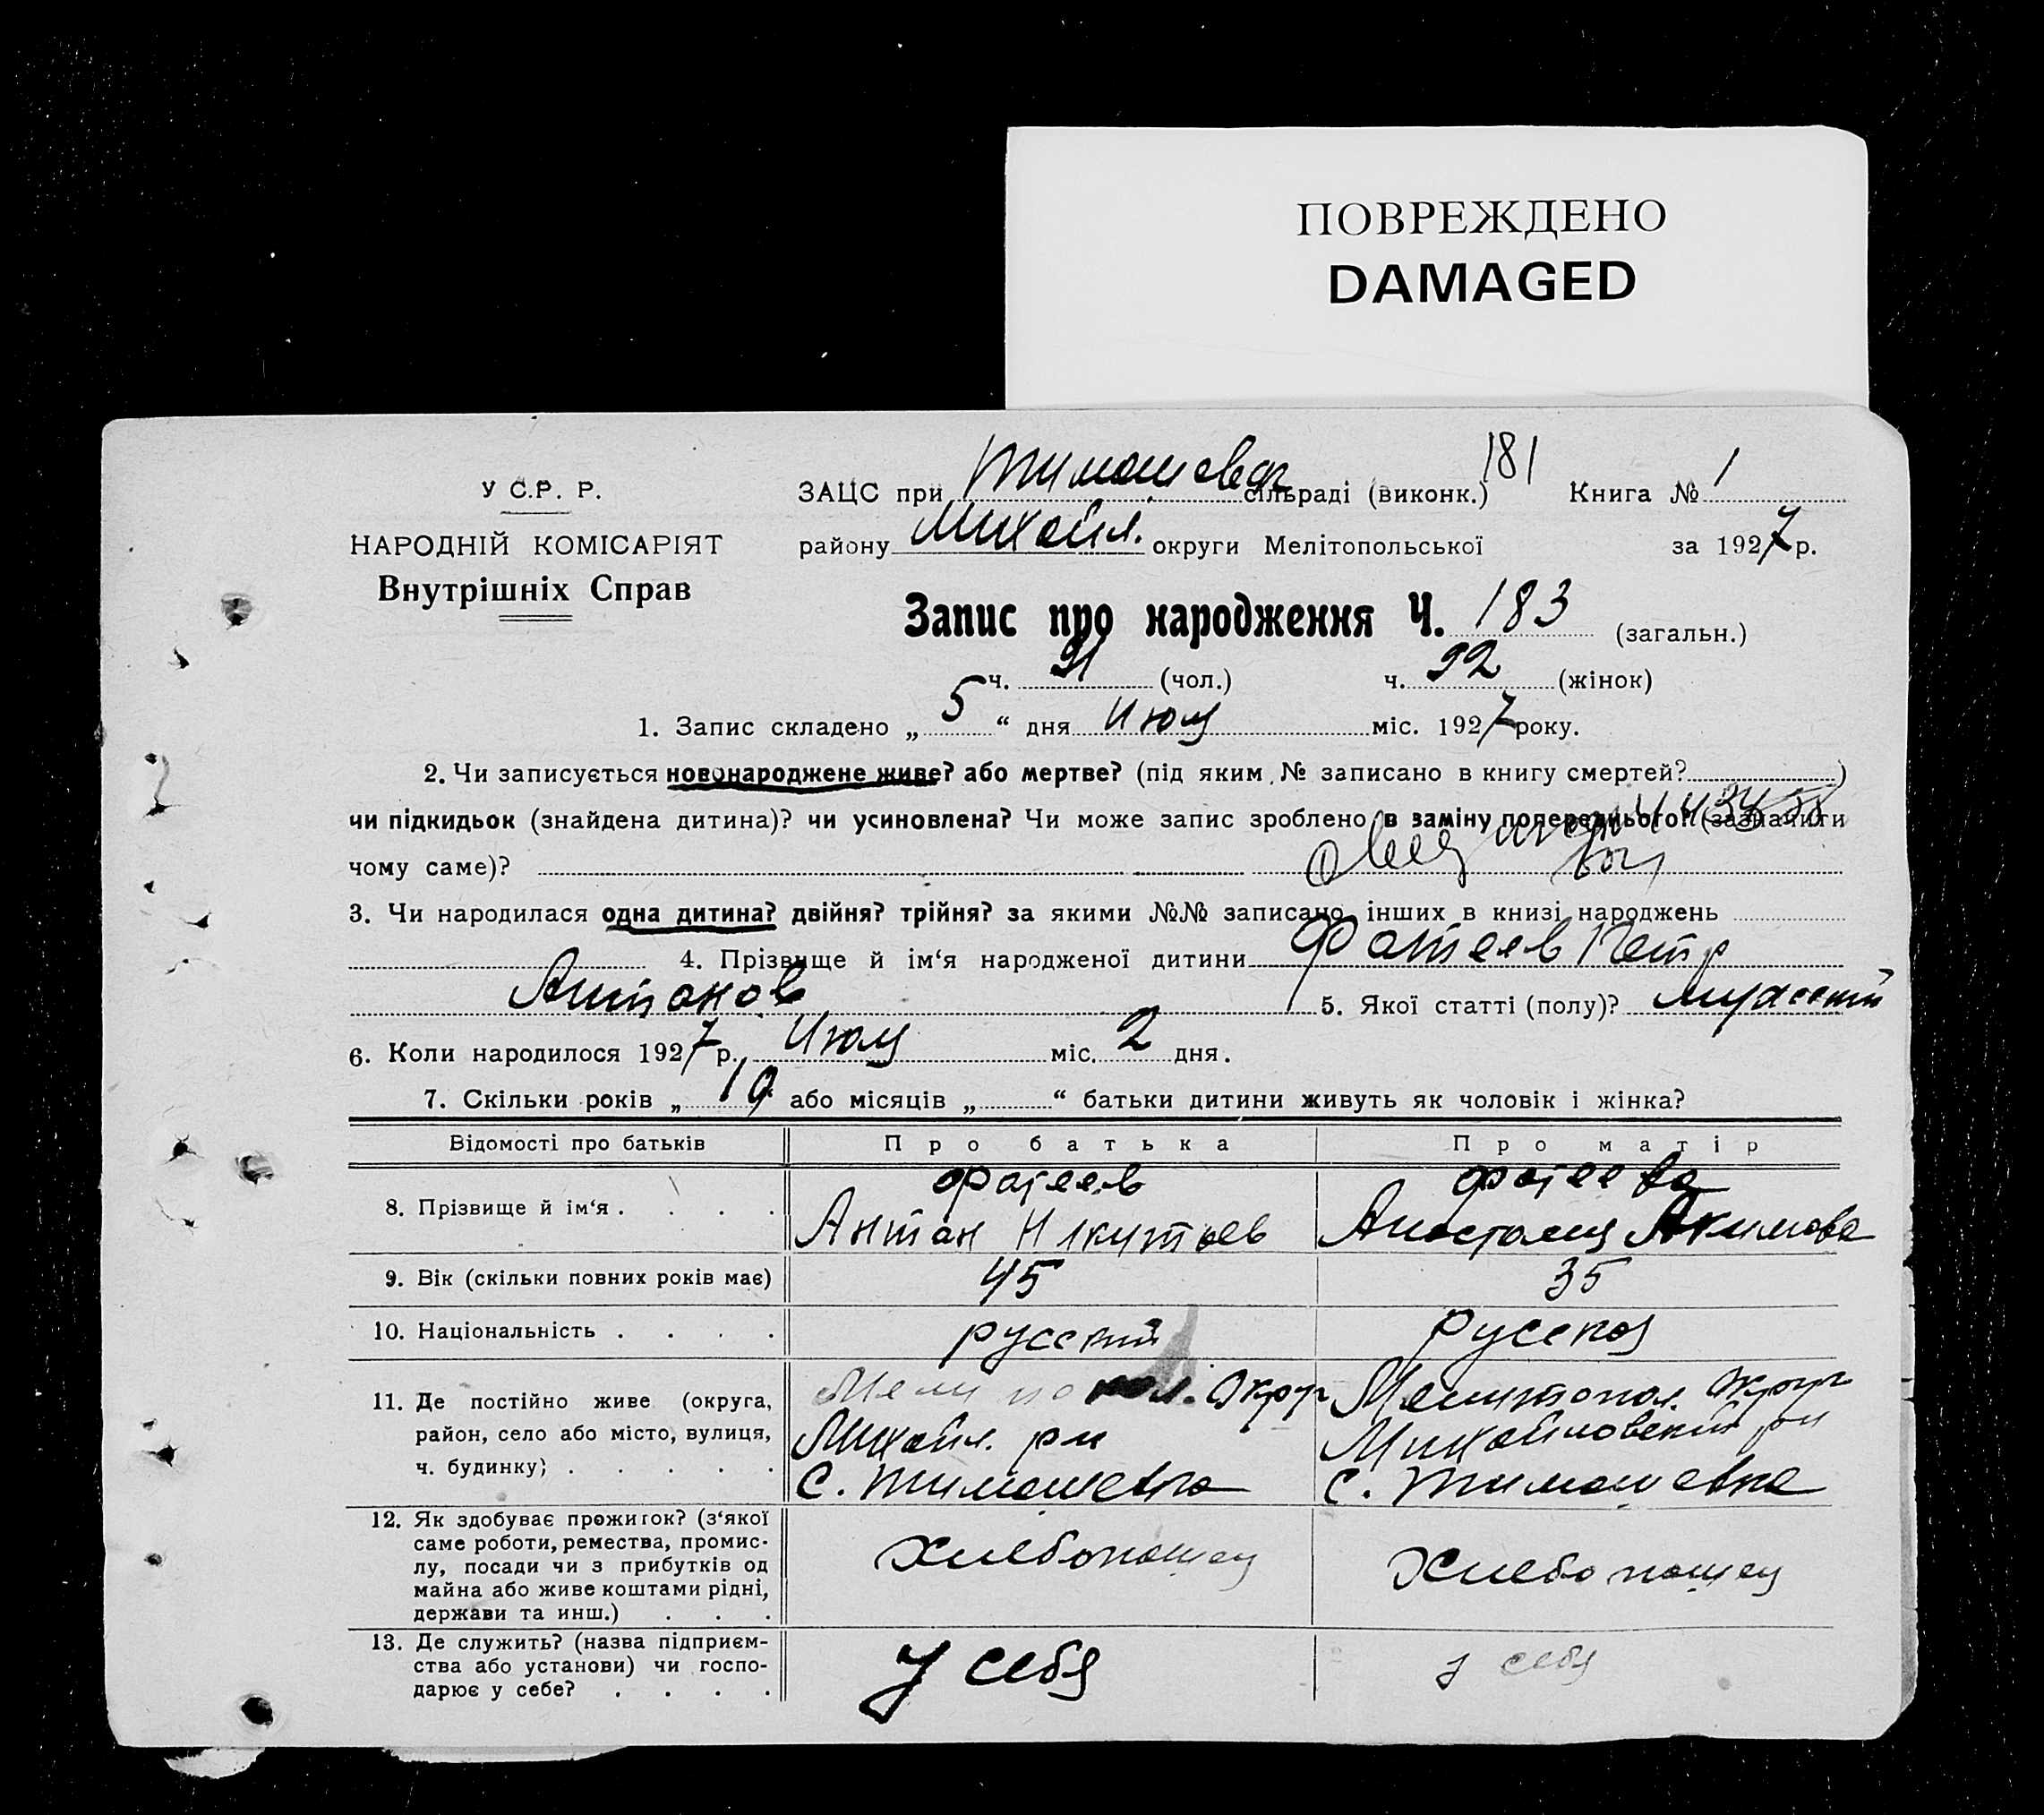 ПОВРЕЖДЕНО
DAMAGED
181
У С.Р. Р.
ЗАЦС при Тимошевск сільраді (виконк.) Книга № 1
НАРОДНІЙ КОМІСАРІЯТ
району Михайл. округи Мелітопольської за 1927 р.
Внутрішніх Справ
Запис про народження Ч. 183 (загальн.)
ч. 91 (чол.) ч. 92 (жінок)
1. Запис складено „ 5 “ дня Июля міс. 1927 року.
2. Чи записується новонароджене живе? або мертве? (під яким № записано в книгу смертей? )
чи підкидьок (знайдена дитина)? чи усиновлена? Чи може запис зроблено в заміну попереднього? (зазначити
чому саме)?
3. Чи народилася одна дитина? двійня? трійня? за якими №№ записано інших в книзі народжень
4. Прізвище й ім‘я народженої дитини Фатеев Петр
Антонов 5. Якої статті (полу)? мужской
6. Коли народилося 1927 р. Июля міс. 2 дня.
7. Скільки років „ 19 або місяців „ “ батьки дитини живуть як чоловік і жінка?
Відомості про батьків Про батька Про матір
8. Прізвище й ім‘я . . . . Фатеев Фатеева
Антон Никитьев Анастасия Акимова
9. Вік (скільки повних років має) 45 35
10. Національність . . . . русский Руская
11. Де постійно живе (округа, Мелитопол. Округ Мелитопол. Округ
район, село або місто, вулиця, Михайл. рн Михайловский рн
ч. будинку) . . . . . С. Тимошевка С. Тимошевка
12. Як здобуває прожиток? (з‘якої
саме роботи, ремества, промис-
лу, посади чи з прибутків од Хлебопашец Хлебопашец
майна або живе коштами рідні,
держави та инш.) . . .
13. Де служить? (назва підприєм-
ства або установи) чи госпо- у себя у себя
дарює у себе? . . . .